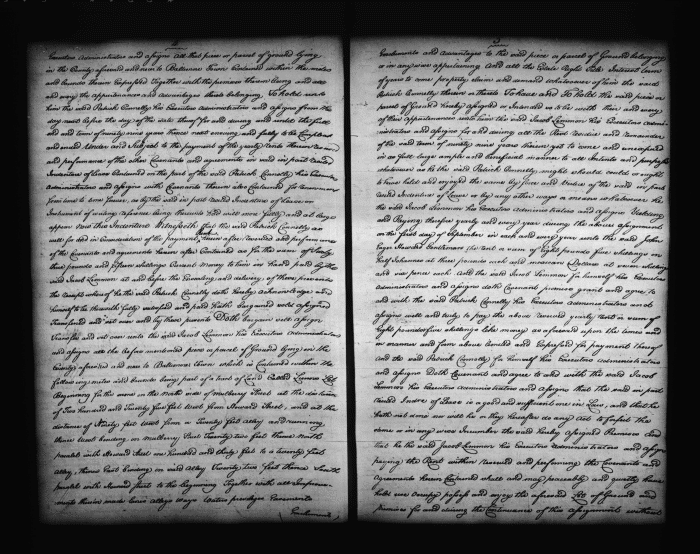 Executors Administrators and assigns all that piece or parcel of Ground lying
in the County aforesaid and near to Baltimore Town Contained within the metes
and bounds therein Expressed Together with the premises thereon being and use
and every the appurtenances and advantages thereto belonging To hold unto
him the said Patrick Connelly his Executors Administrators and assigns from the
day next before the day of the date thereof for and during and until the full
end and term of ninety nine years thence next ensuing and fully to be Compleat
and ended Under and Subject to the payment of the yearly rents therein
and performance of the other Covenants and agreements in said in part recited
Indenture of Lease Contained on the part of the said Patrick Connelly his Executors
Administrators and assigns with Covenants therein also Contained for renewal
from time to time forever, as by the said in part recited Indenture of Lease or
Instrument of writing reference being thereunto had will more fully and at large
appear Now this Indenture Witnesseth that the said Patrick Connelly as
well for and in Consideration of the payment, herein after reserved and performance
of the Covenants and agreements herein after Contained as for the sum of
three pounds and fifteen shillings Current Money to him in hand paid by the
said Jacob Lemmon at and before the Ensealing and delivery of these presents
the receipt whereof he the said Patrick Connelly doth hereby acknowledge and
himself to be therewith fully satisfied and paid Hath bargained sold assigned
Transfered and set over and by these presents Doth bargain sell assign
Transfer and set over unto the said Jacob Lemmon his Executors Administrators
and assigns all the before mentioned piece or parcel of Ground lying in the
County aforesaid and near to Baltimore Town which is Contained within the
following metes and bounds being part of a tract of Land Called Lunns Lot
Beginning for the same on the North side of Mulberry Street at the distance
of Two hundred and Twenty two feet West from Howard Street, and at the
distance of Ninety feet West from a Twenty feet alley and running
thence West binding on Mulberry Street Twenty two feet thence North
parallel with Howard Street one Hundred and thirty feet to a Twenty feet
Alley, thence East binding on said Alley Twenty two feet thence South
parallel with Howard Street to the beginning Together with all Improve
ments thereon made lanes alleys ways waters privileges Easements
Emoluments
3
Emoluments and advantages to the said piece or parcel of Ground belonging
or in any wise appertaining And all the Estate Right Title Interest term
of years to come property claim and demand whatsoever of him the said
Patrick Connelly therein or thereto To have and To hold the said piece or
parcel of Ground hereby assigned or Intended so to be with their and every
of their appurtenances unto him the said Jacob Lemmon his Executors Admini
strators and assigns for and during all the Rest residue and remainder
of the said term of ninety nine years therein yet to come and unexpired
in as full large ample and beneficial manner to all Intents and purposes
whatsoever as he the said Patrick Connelly might should could or ought
to have held and enjoyed the same by force and virtue of the said in part
recited Indenture of Lease or by any other ways or means whatsoever he
the said Jacob Lemmon his Executors administrators and assigns Yielding
and Paying therefor yearly and every year during the above assignment
on the first day of September in each and every year unto the said John
Eager Howard
and
and the said Jacob Lemmon for himself his Executors
administrators and assigns doth Covenant promise grant and agree to
and with the said Patrick Connelly his Executors Administrators and
assigns well and truly to pay the above reserved yearly rent or sum of
eight pounds five shillings like money as aforesaid upon the times and
in manner and form above limited and Expressed for payment thereof
and the said Patrick Connelly for himself his Executors administrators
and assigns Doth Covenant and agree to and with the said Jacob
Lemmon his Executors administrators and assigns that the said in part
recited Indre of Lease is a good and sufficient one in Law, and that he
hath not done nor will he or they hereafter do any Act to forfeit the
same or in any wise Incumber the said hereby assigned Premises And
that he the said Jacob Lemmon his Executors administrators and assigns
paying the Rent within reserved and performing the Covenants and
Agreements herein Contained shall and may peaceably and quietly have
hold use occupy possess and enjoy the aforesaid Lot of Ground and
premises for and during the Continuance of this assignment without